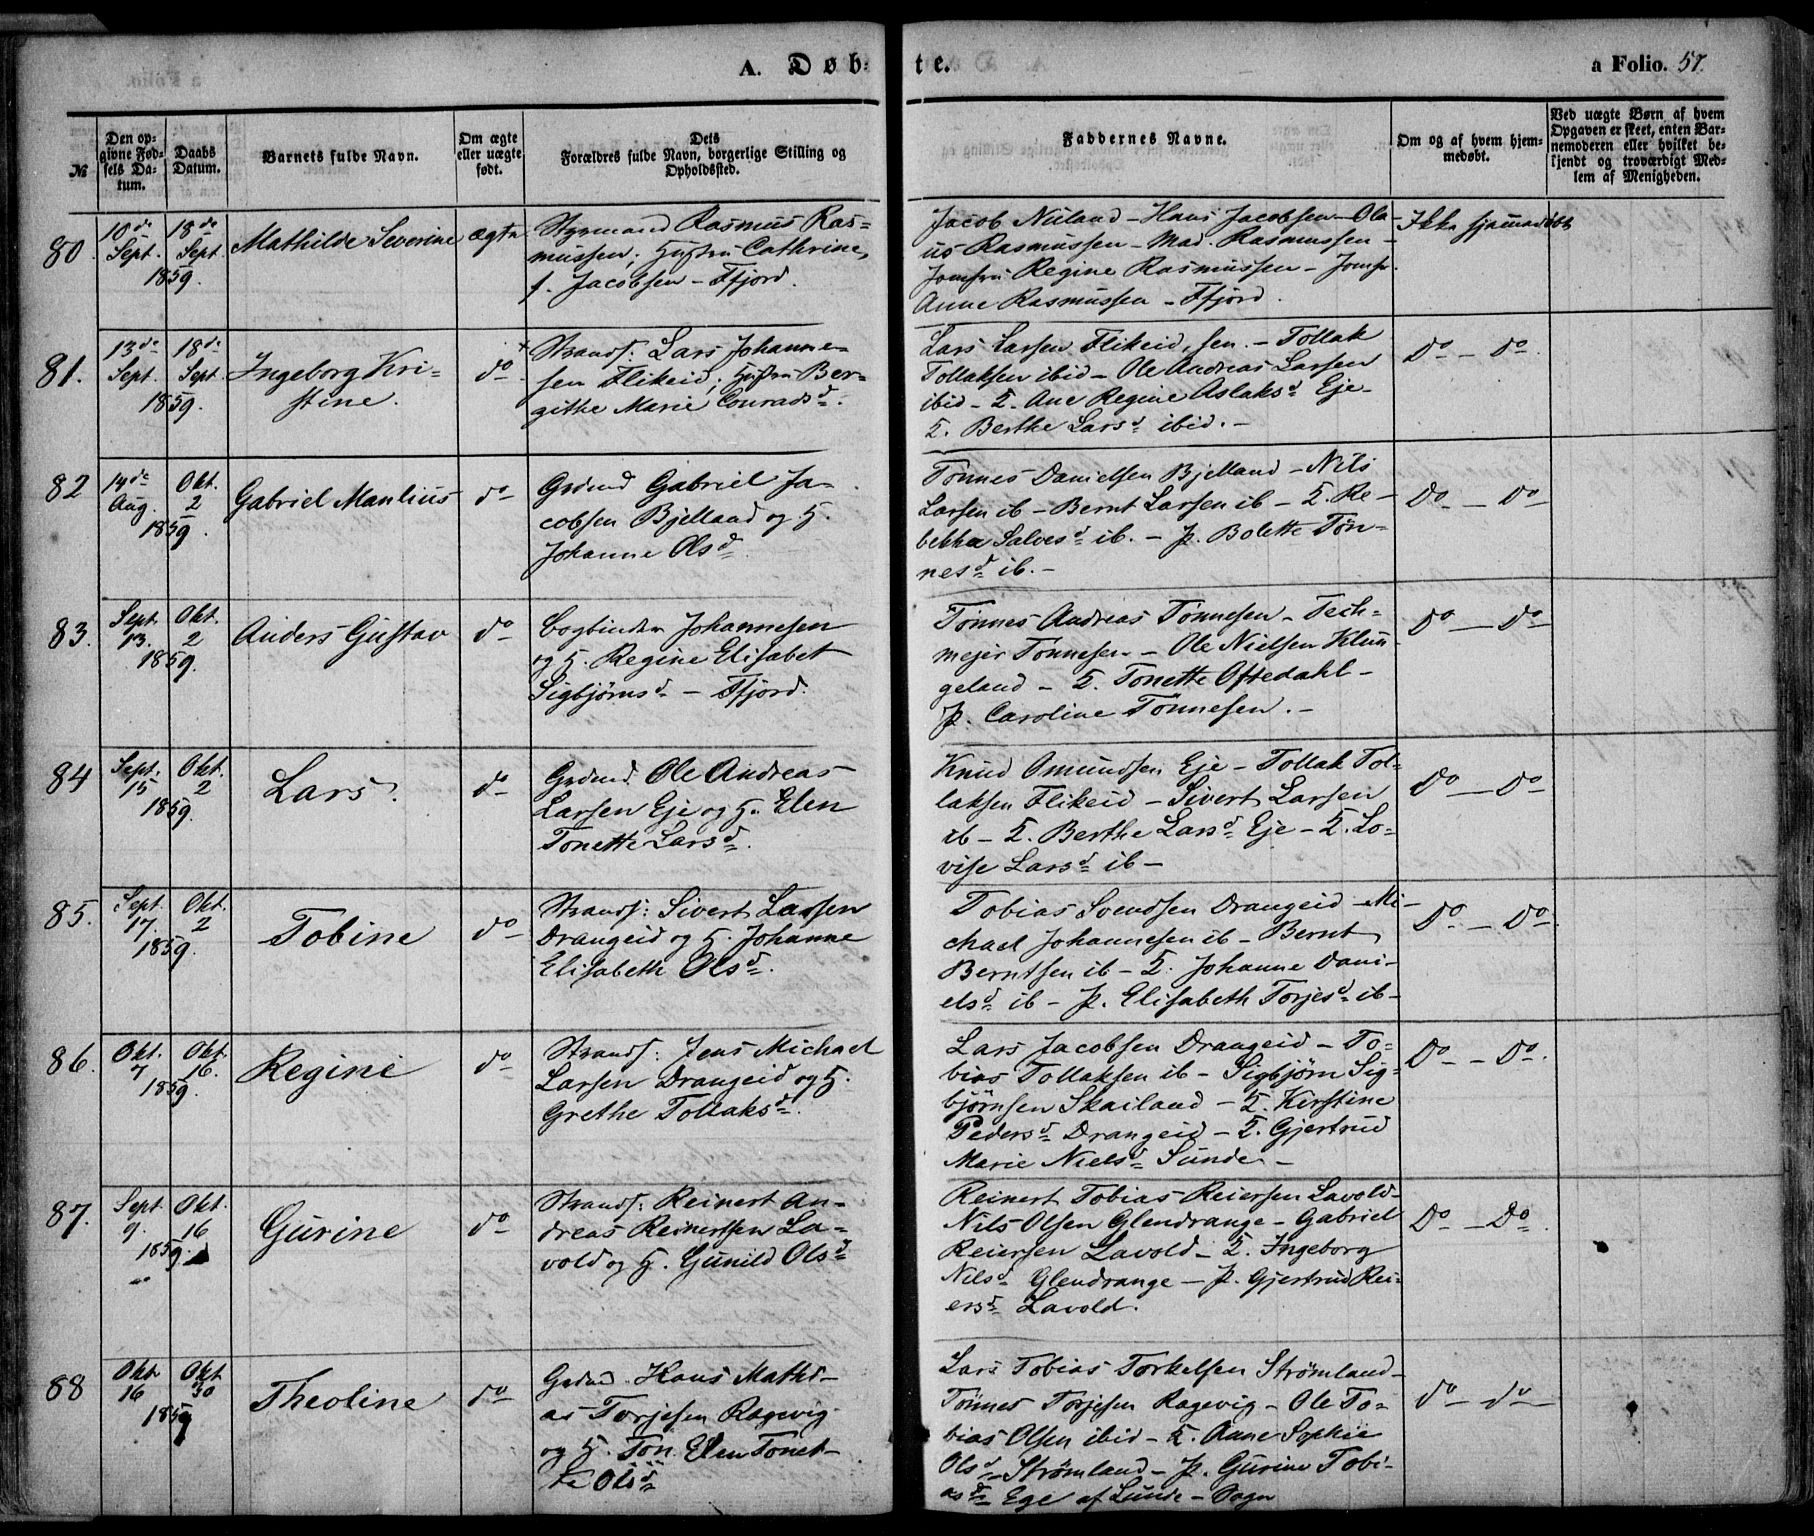 A. Døb-
te.
a Folio. 57.
№
Den op-
givne Fød-
sels Da-
tum.
Daabs
Datum.
Barnets fulde Navn.
Om ægte
eller uægte
født.
Dets
Forældres fulde Navn, borgerlige Stilling og
Opholdssted.
Faddernes Navne.
Om og af hvem hjem-
medøbt.
Ved uægte Børn af hvem
Opgaven er skeet, enten Bar-
nemoderen eller hvilket be-
kjendt og troværdigt Med-
lem af Menigheden.
80.
10de
Sept.
18de
Sept.
1859.
Mathilde Severine
ægte
Styrmand Rasmus Ras-
mussen; Hustru Cathrine,
f. Jacobsen - Ffjord.
Jacob Nuland - Hans Jacobsen - Ola-
us Rasmussen - Mad. Rasmussen -
Jomfru Regine Rasmussen - Jomfr.
Anne Rasmussen - Ffjord.
Ikke hjemmedøbt
81.
13de
Sept.
18de
Sept.
1859.
Ingeborg Kri-
stine.
do
Strands: Lars Johanne-
sen Flikeid; Hustru Ber-
githe Marie Conradsd.
Lars Larsen Flikeid, sen. - Tollak
Tollaksen ibid - Ole Andreas Larsen
ibid - K. Ane Regine Aslaksd Eje -
K. Berthe Larsd ibid. -
Do - do.
82
14de
Aug.
Okt.
2
1859.
Gabriel Manlius
do
Grdmd Gabriel Ja-
cobsen Bjelland og H.
Johanne Olsd.
Tønnes Danielsen Bjelland - Nils
Larsen ib - Bernt Larsen ib - K. Re-
bekka Salvesd ib. - P. Bolette Tøn-
nesd ib. -
Do - Do
83.
Sept.
13.
Okt.
2
1859.
Anders Gustav
do
Bogbinder Johannesen
og H. Regine Elisabet
Sigbjørnsd - Ffjord.
Tønnes Andreas Tønnesen - Tech-
mejer Tønnesen - Ole Nielsen Klun-
geland - K. Tonette Oftedahl -
P. Caroline Tønnesen. -
Do - Do.
84
Sept.
15
Okt.
2
1859.
Lars.
do
Grdmd. Ole Andreas
Larsen Eje og H. Elen
Tonette Larsd.
Knud Omundsen Eje - Tollak Tol-
laksen Flikeid - Sivert Larsen
ib - K. Berthe Larsd Eje - K. Lo-
vise Larsd ib -
Do - Do
85.
Sept.
17.
Okt.
2
1859.
Tobine
do
Strands: Sivert Larsen
Drangeid og H. Johanne
Elisabeth Olsd.
Tobias Svendsen Drangeid - Mi-
chael Johannesen ib - Bernt
Berntsen ib - K. Johanne Dani-
elsd ib - P. Elisabeth Torjesd ib -
Do - Do.
86.
Okt.
7
Okt.
16.
1859.
Regine
do
Strands: Jens Michael
Larsen Drangeid og H.
Grethe Tollaksd.
Lars Jacobsen Drangeid - To-
bias Tollaksen ib - Sigbjørn Sig-
bjørnsen Skailand - K. Kirstine
Pedersd Drangeid - K. Gjertrud
Marie Nielsd Sunde. -
Do - Do.
87.
Sept.
9.
Okt.
16
1859.
Gurine
do
Strands: Reinert An-
dreas Reinertsen La-
vold og H. Gunild Olsd
Reinert Tobias Reiersen Lavold -
Nils Olsen Glendrange - Gabriel
Reiersen Lavold - K. Ingeborg
Nilsd Glendrange - P. Gjertrud Rei-
ersd Lavold.
Do - Do.
88
Okt.
16
Okt
30
1859
Theoline
do
Grdmd. Hans Mathi-
as Torjesen Ragevig
og H. Ton. Elen Tonet-
te Olsd
Lars Tobias Torkelsen Strømland -
Tønnes Torjesen Ragevig - Ole To-
bias Olsen ibid - K. Anne Sophie
Olsd Strømland - P. Gurine Tobi-
asd Ege af Lunde - Sogn
do - do -